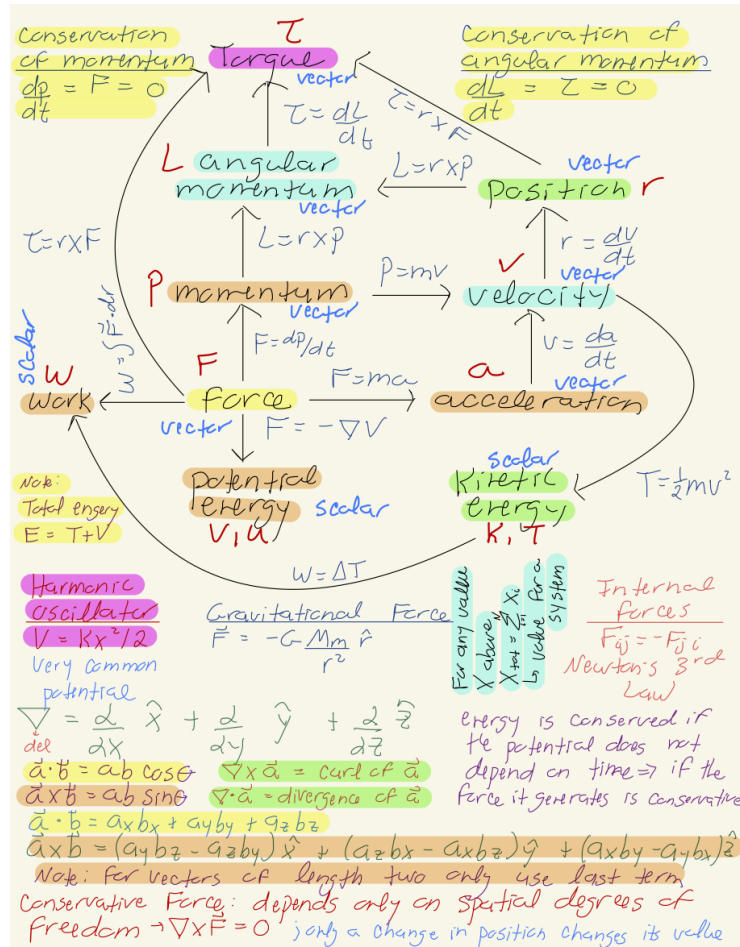 Conservation
of momentum
dp/dt = F = 0
τ
Torque
vector
Conservation of
angular momentum
dL/dt = τ = 0
τ = dL/dt
τ=r×F
L angular
momentum
vector
L=r×P
vector
position r
τ=r×F
L=r×P
r = dv/dt
P momentum
vector
P=mv
v
vector
velocity
W=∫F⃗·dr
F=dp/dt
v = da/dt
scalar
W
work
F
force
vector
F=ma
a
vector
acceleration
F = -∇V
potential
energy
scalar
V, U
scalar
Kinetic
energy
K, T
T=½mv²
Note:
Total engery
E = T+V
W=ΔT
Harmonic
oscillator
V = Kx²/2
very common
potential
Gravitational Force
F⃗ = -G Mm/r² r̂
For any value
X above
X_tot = Σ_{i=1}^{N} X_i
↳ value for a
system
Internal
forces
F_ij = -F_ji
Newton's 3rd
Law
∇ = d/dx x̂ + d/dy ŷ + d/dz ẑ
del
a⃗·b⃗ = ab cosθ
∇×a⃗ = curl of a⃗
a⃗×b⃗ = ab sinθ
∇·a⃗ = divergence of a⃗
a⃗·b⃗ = axbx + ayby + azbz
energy is conserved if
the potential does not
depend on time ⇒ if the
force it generates is conservative
a⃗×b⃗ = (aybz - azby)x̂ + (azbx - axbz)ŷ + (axby - aybx)ẑ
Note: for vectors of length two only use last term
Conservative Force: depends only on spatial degrees of
freedom → ∇×F⃗ = 0 ; only a change in position changes its value